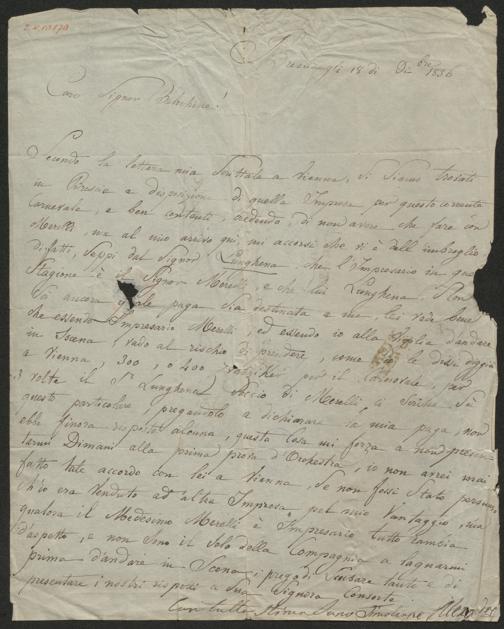 18 di Dbre 1836
Caro Signor
Secondo la lettera mia Scrittale a Vienna, Si Siamo trovati
in Brescia a disposizione di quella Impresa per questo corrente
carnevale, e ben contenti, credendo, di non avere che fare con
Merelli, ma al mio arivo qui, mi accorsi che vi è dell' imbroglio
difatti, Seppi dal Signor Lunghena, che l'Impresario in questa
Stagione è il Signor Merelli, e che lui Lunghena, Non
Sà ancora quale paga Sia destinata a me, lei vede bene
che essendo Impresario Merelli, ed essendo io alla Voglia d'andare
in Scena, vado al rischio di perdere, come le dissi diggià
a Vienna, 300, o 400 per il Carnovale, Per
3 volte il Sr. Lunghena Socio di Merelli, Scrisse Sù
questo particolare, pregandolo a dichiarare la mia paga, non
ebbe finora risposta alcuna, questa cosa mi forza a non presen-
tarmi Dimani alla prima prova d'Orchestra, io non avrei mai
fatto tale accordo con lei a Vienna, Se non fossi Stato persuaso,
ch'io era venduto ad altra Impresa, pel mio Vantaggio, ma
qualora il Medesimo Merelli è Impresario tutto cancia
d'aspetto, e non Sono il Solo della Compagnia a lagnarmi
prima d'andare in Scena, i prego di Scusare tanto e di
presentare i nostri rispetti a Sua Signora Consorte
Con tutta Stima Sono